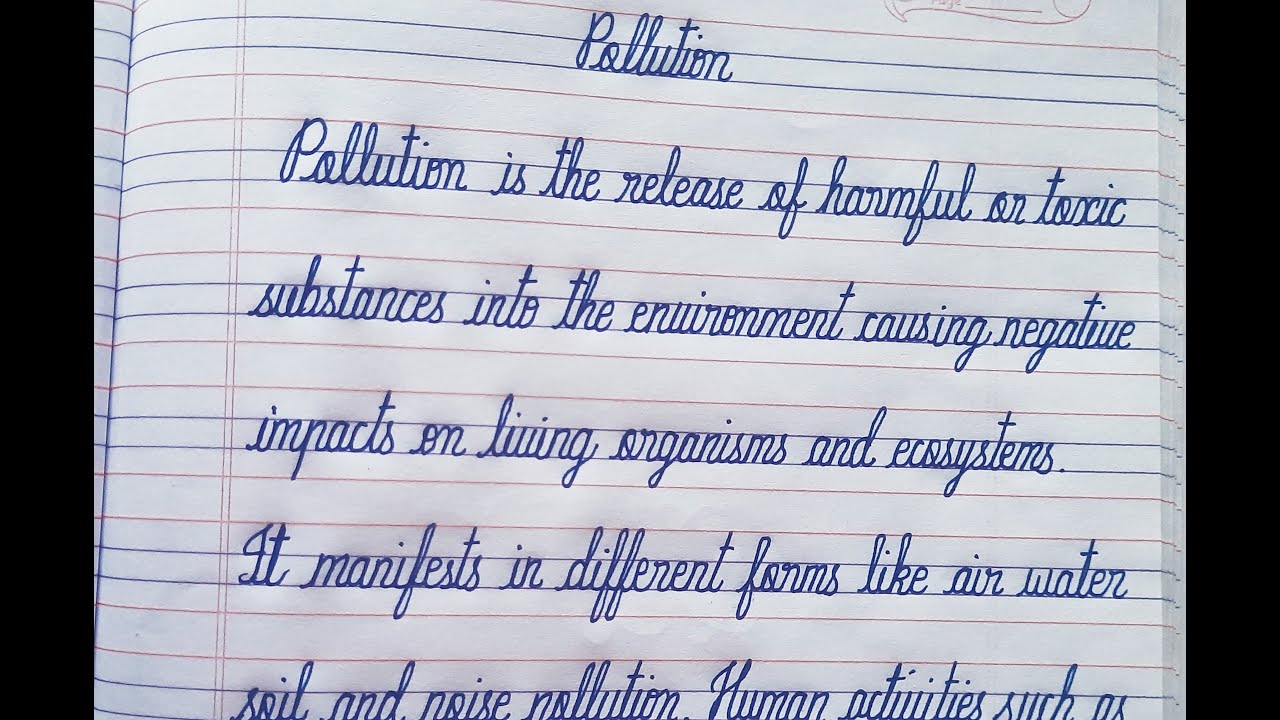 Page
Pollution
Pollution is the release of harmful or toxic
substances into the environment causing negative
impacts on living organisms and ecosystems.
It manifests in different forms like air water
soil and noise pollution. Human activities such as